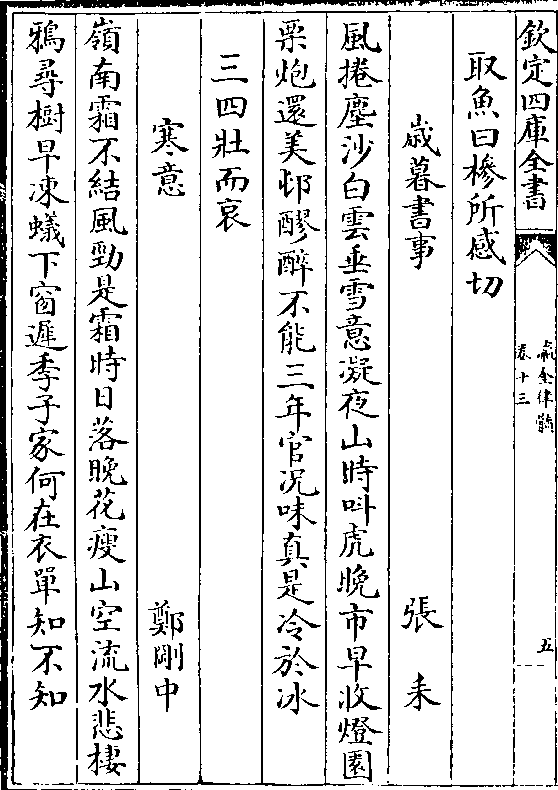 欽定四庫全書
瀛奎律髓
卷十三
五
取魚曰槮所感切
歳暮書事
張耒
風捲塵沙白雲垂雪意凝夜山時叫虎晚市早收燈園
栗炮還美邨醪醉不能三年官况味真是冷於冰
三四壯而哀
寒意
鄭剛中
嶺南霜不結風勁是霜時日落晚花瘦山空流水悲棲
鴉尋樹早凍蟻下窗遲季子家何在衣單知不知